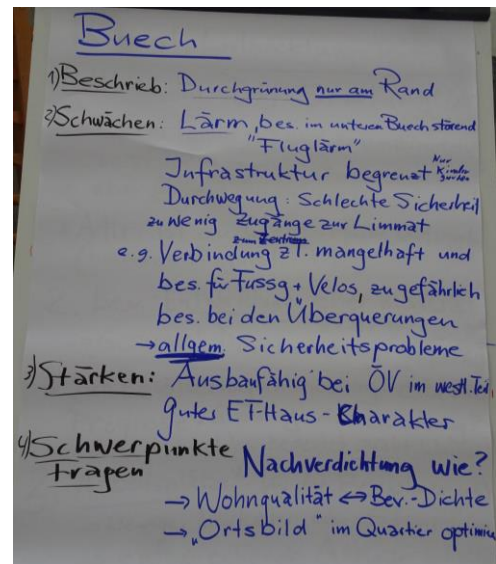 Buech
1) Beschrieb: Durchgrünung nur am Rand
2) Schwächen: Lärm, bes. im unteren Buech störend
"Fluglärm"
Infrastruktur begrenzt Nur Kinder-garten
Durchwegung: Schlechte Sicherheit
zu wenig Zugänge zur Limmat
zum Zentrum
e.g. Verbindung z.T. mangelhaft und
bes. für Fussg + Velos, zu gefährlich
bes. bei den Überquerungen
→ allgem. Sicherheitsprobleme
3) Stärken: Ausbaufähig bei ÖV im westl. Teil,
guter EF-Haus-Charakter
4) Schwerpunkte
fragen
Nachverdichtung wie?
→ Wohnqualität ↔ Bev.-Dichte
→ "Ortsbild" im Quartier